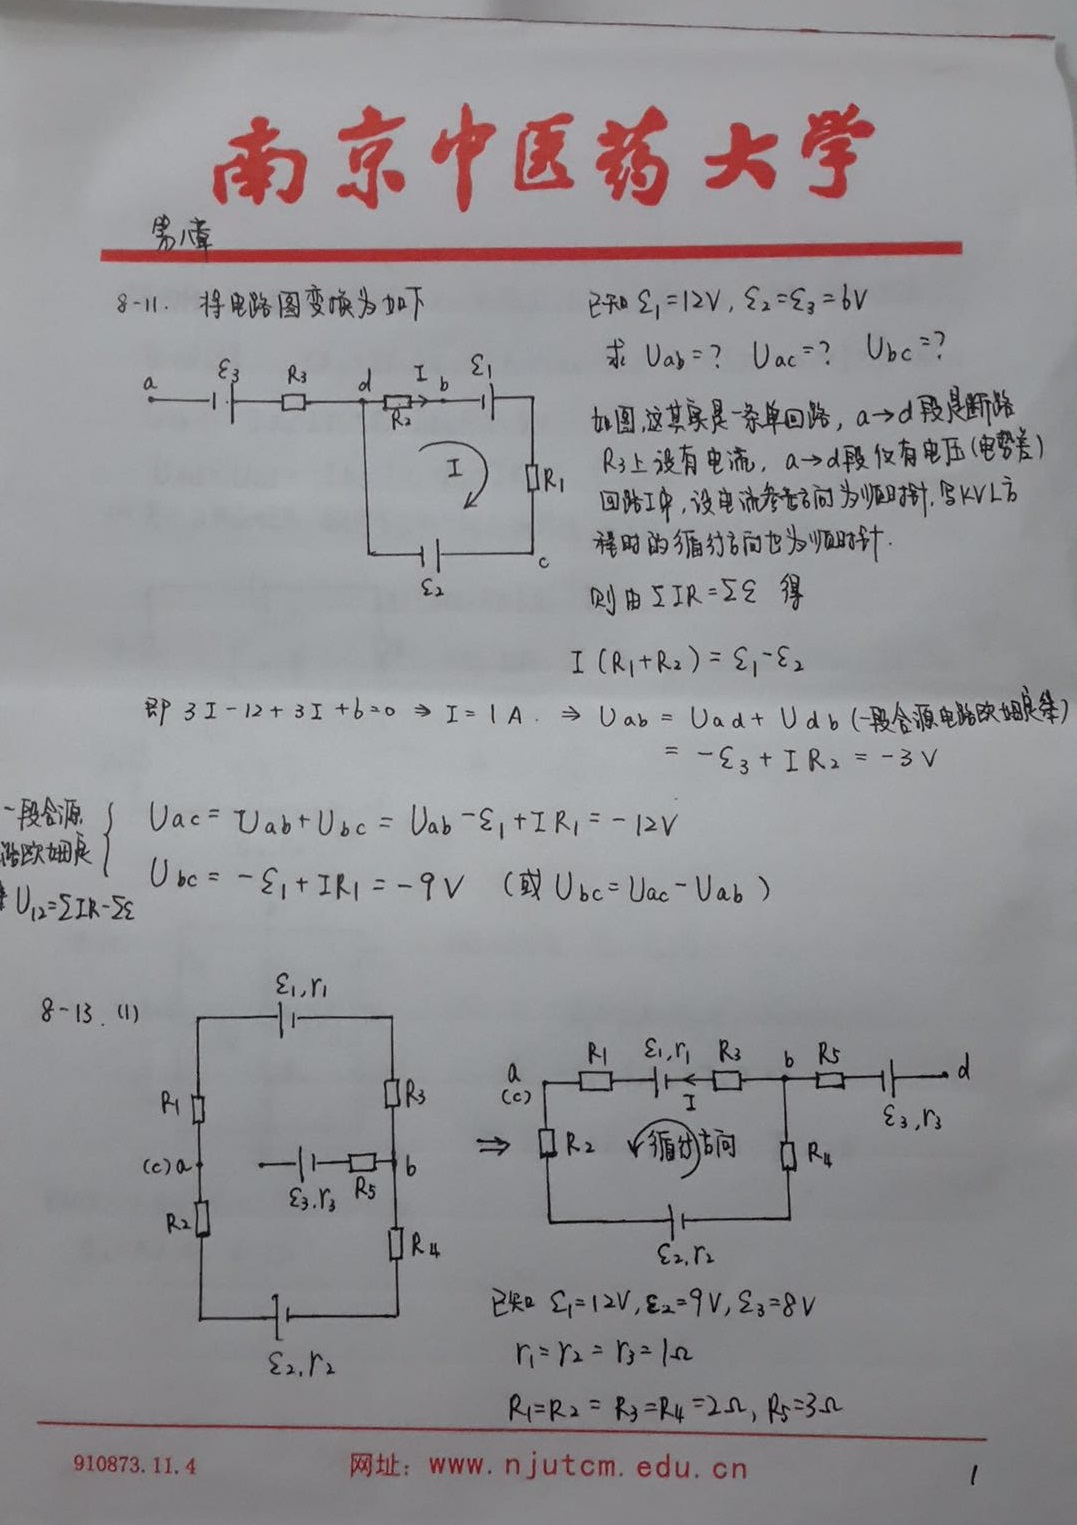 南京中医药大学
第八章
8-11. 将电路图变换为如下
已知 ε₁=12V, ε₂=ε₃=6V
求 Uab=? Uac=? Ubc=?
a ε₃ R₃ d I b ε₁
R₂
I R₁
ε₂ c
如图,这其实是一条单回路, a→d段是断路
R₃上没有电流, a→d段仅有电压(电势差)
回路I中,设电流参考方向为顺时针,写KVL方
程时的循行方向也为顺时针.
则由ΣIR=Σε 得
I(R₁+R₂)=ε₁-ε₂
即 3I-12+3I+6=0 ⇒ I=1A. ⇒ Uab = Uad + Udb (一段含源电路欧姆定律)
= -ε₃+IR₂ = -3V
一段含源
路欧姆定
律 U₁₂=ΣIR-Σε
Uac = Uab+Ubc = Uab-ε₁+IR₁ = -12V
Ubc = -ε₁+IR₁ = -9V (或 Ubc=Uac-Uab)
8-13. (1)
ε₁,r₁
R₁ R₃
(c)a b
ε₃,r₃ R₅
R₂ R₄
ε₂,r₂
⇒
a R₁ ε₁,r₁ R₃ b R₅ d
(c) I ε₃,r₃
R₂ 循行方向 R₄
ε₂,r₂
已知 ε₁=12V, ε₂=9V, ε₃=8V
r₁=r₂=r₃=1Ω
R₁=R₂=R₃=R₄=2Ω, R₅=3Ω
910873.11.4 网址: www.njutcm.edu.cn 1